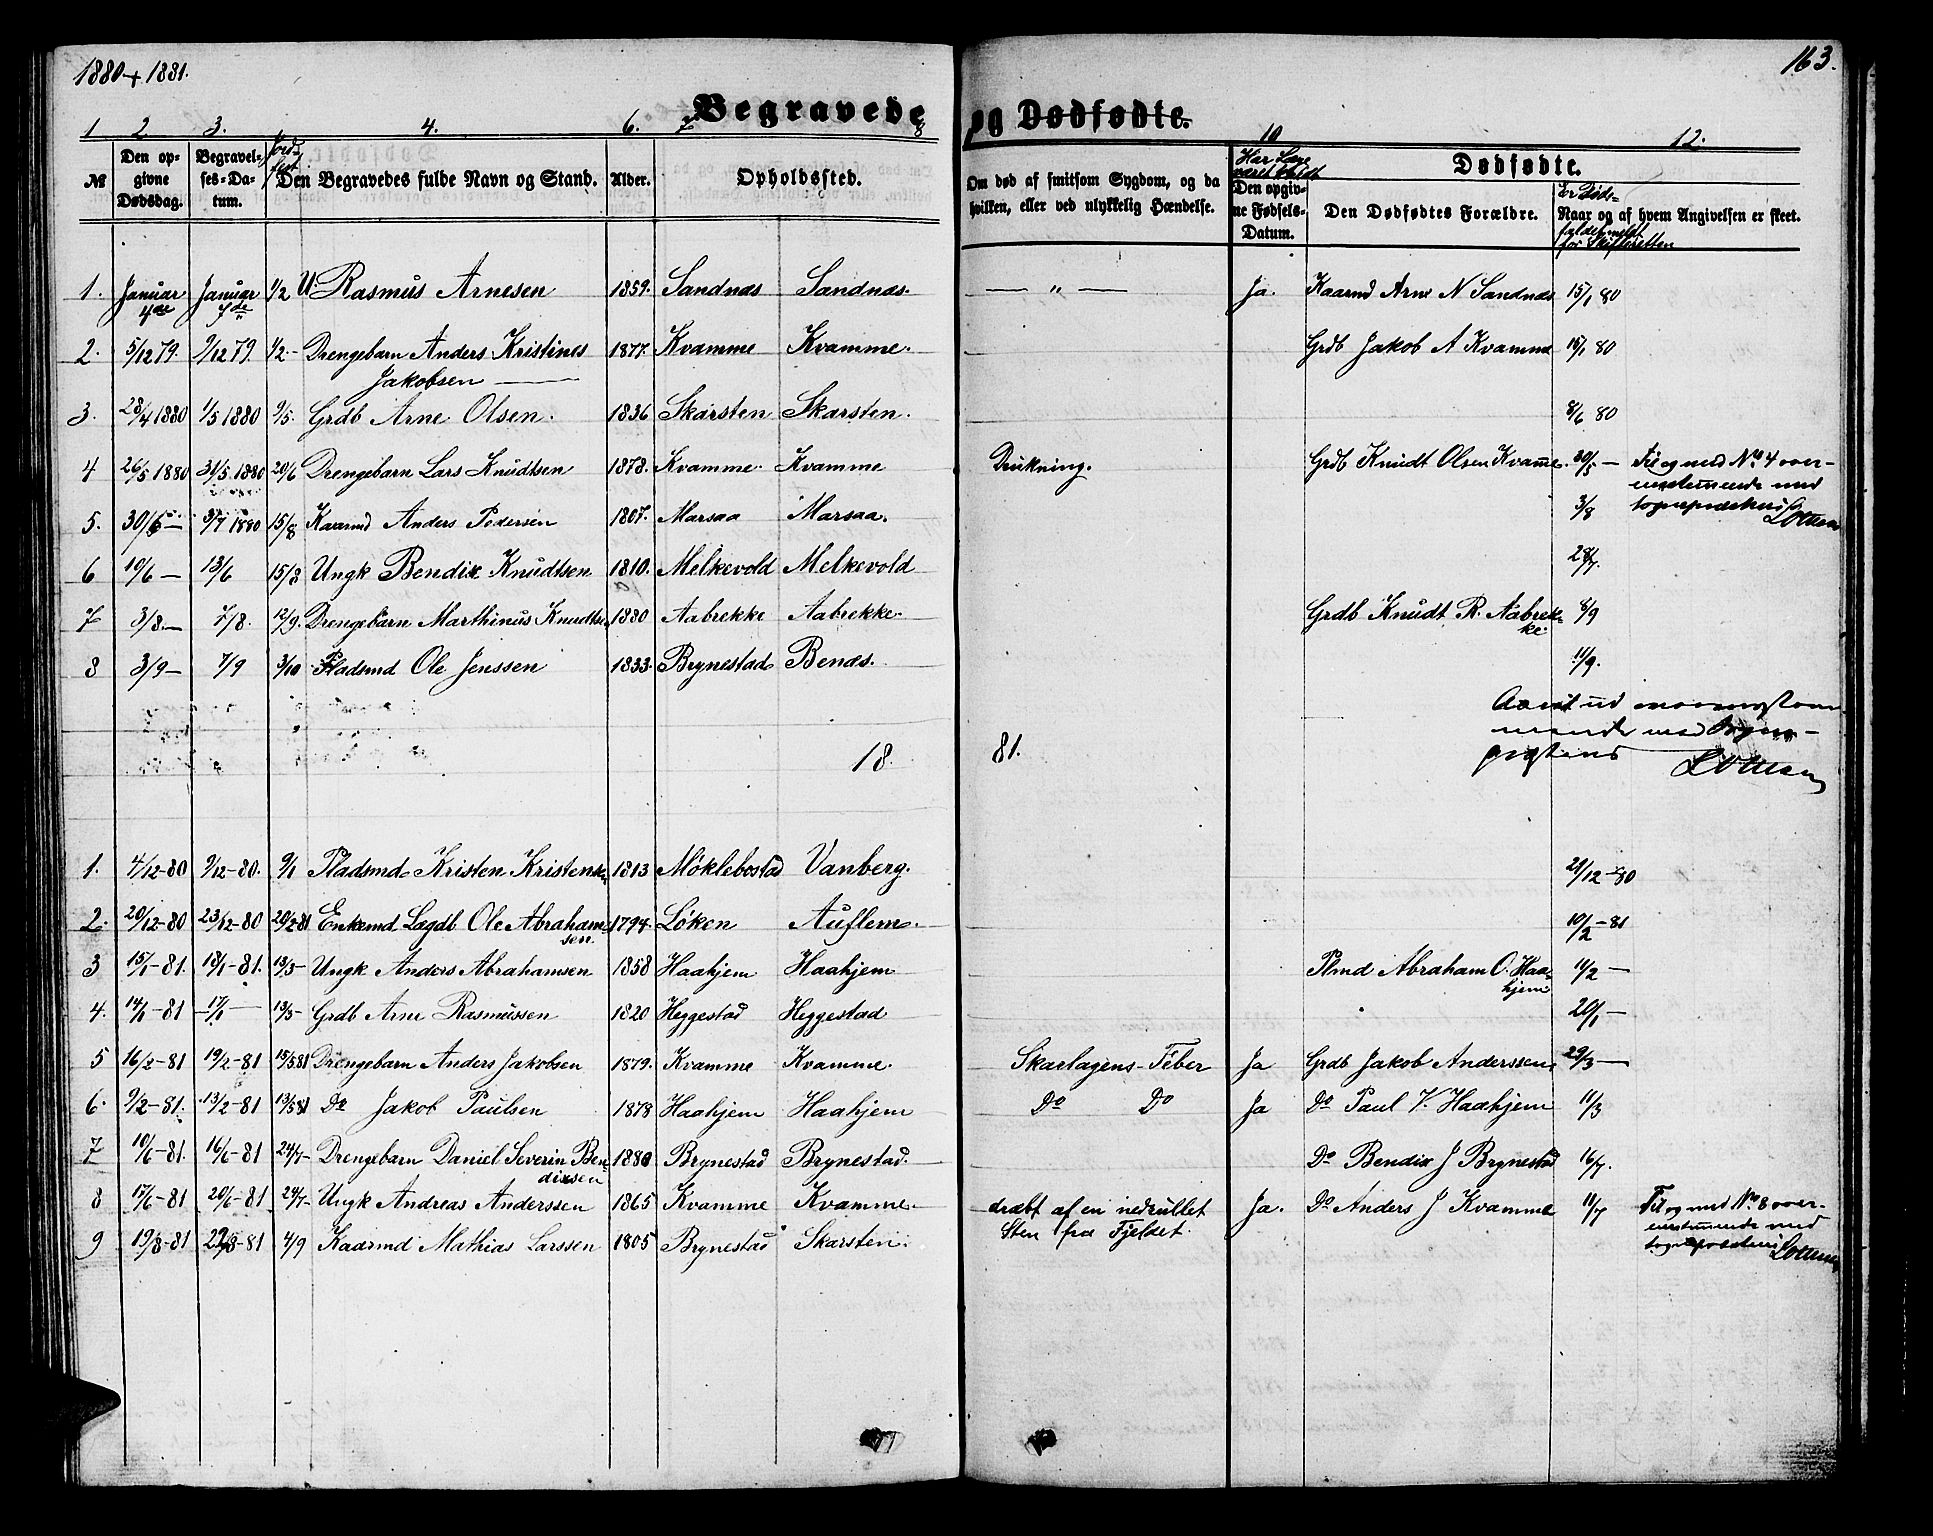 1880 + 1881.
163.
Begravede og Dødfødte.
1 2 3. 4. 6. 7 8 10 12.
№ Den opgivne Dødsdag. Begravelses-Datum. Jordfest. Den Begravedes fulde Navn og Stand. Alder. Opholdssted. Om død af smitsom Sygdom, og da hvilken, eller ved ulykkelig Hændelse. Har Læge været Den opgivne Fødsels-Datum. Dødfødte. Den Dødfødtes Forældre. Er Døds- Naar og af hvem Angivelsen er skeet. faldet meldt for Skifteretten
1. Januar 4de Januar 7de 1/2 U. Rasmus Arnesen 1859. Sandnæs Sandnæs. — " — Ja. Kaarmd Arne N Sandnæs 15/1 80
2. 5/12 79. 9/12 79. 1/2 - Drengebarn Anders Kristines 1877. Kvamme Kvamme. Grdb Jakob A Kvamme 15/1 80
Jakobsen —
3. 28/4 1880 1/5 1880 9/5. Grdb Arne Olsen. 1836 Skarsten Skarsten. 8/6 80
4 26/5 1880 31/5 1880 20/6 Drengebarn Lars Knudtsen 1878. Kvamme. Kvamme Drukning. Grdb Knudt Olsen Kvamme. 30/5 — Til og med No 4 over-
ensstemmende med
5. 30/6 — 3/7 1880 15/8 Kaarmd Anders Pedersen 1807. Marsaa Marsaa. 3/8
6 10/6 — 13/6 15/8 Ungk Bendix Knudtsen 1810. Melkevold Melkevold 28/7.
7 3/8. — 7/8. 12/9. Drengebarn Marthinus Knudtsen 1880 Aabrekke Aabrekke. Grdb Knudt R. Aabrekke 8/9
8 3/9 — 7/9 3/10 Pladsmd Ole Jenssen 1833. Brynestad Benæs. 11/9.
18 81.
1. 4/12-80 9/12-80. 9/1 Pladsmd Kristen Kristensen 1813 Møklebostad Vanberg. 21/12-80
2. 20/12-80 23/12-80 20/2-81 Enkemd Lægdb Ole Abrahamsen. 1794. Løken Auflem. 10/2-81
3 15/1-81. 18/1-81. 13/3- Ungk Anders Abrahamsen 1858 Haahjem Haahjem Plmd Abraham O. Haahjem 11/2 —
4. 14/1-81 17/1 — 13/3- Grdb Arne Rasmussen 1820 Heggestad Heggestad 20/1 —
5 16/2-81 19/2-81 15/5 81 Drengebarn Anders Jakobsen 1879. Kvamme Kvamme. Skarlagens-Feber Ja Grdb Jakob Anderssen 29/3 —
6. 9/2-81. 13/2-81 13/3 81 Do Jakob Paulsen 1878 Haahjem Haahjem Do Do Ja Do Paul V. Haahjem 11/3
7 10/6-81. 16/6-81 24/7- Drengebarn Daniel Severin Bendixsen 1880 Brynestad Brynestad. Do Bendix J Brynestad 16/7.
8 17/6-81 20/6-81 24/7- Ungk Andreas Anderssen 1865 Kvamme Kvamme. dræbt af en nedrullet Sten fra Fjeldet. Ja. Do Anders J Kvamme 11/7 Til og med No 8 over-
ensstemmende med
9 19/8-81 22/8-81 4/9 Kaarmd Mathias Larssen 1805 Brynestad Skarsten.